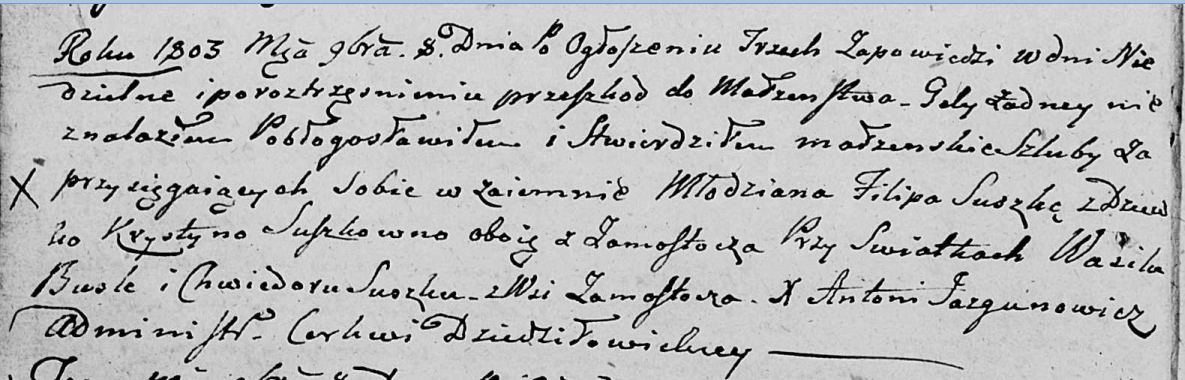 Roku 1803 Mςa 9bra. 8. Dnia Po Ogłoszeniu Trzech Zapowiedzi w dni Nie
dzielne i poroztrząśnieniu przeszkod do Małzenstwa. Gdy żadney nie
znalazłem Pobłogosławiłem i Stwierdziłem małzenskie Szluby Za
X przysięgaiących Sobie w zaiemnie Młodziana Filipa Suszkę z Dziew
ko Krystyno Suszkowno oboią z Zamosłocza Przy Swiatkach Wasilu
Busle i Chwiedoru Suszku. z Wsi Zamosłocza. X Antoni Jazgunowicz
Administr. Cerkwi Dziedziłowickiey